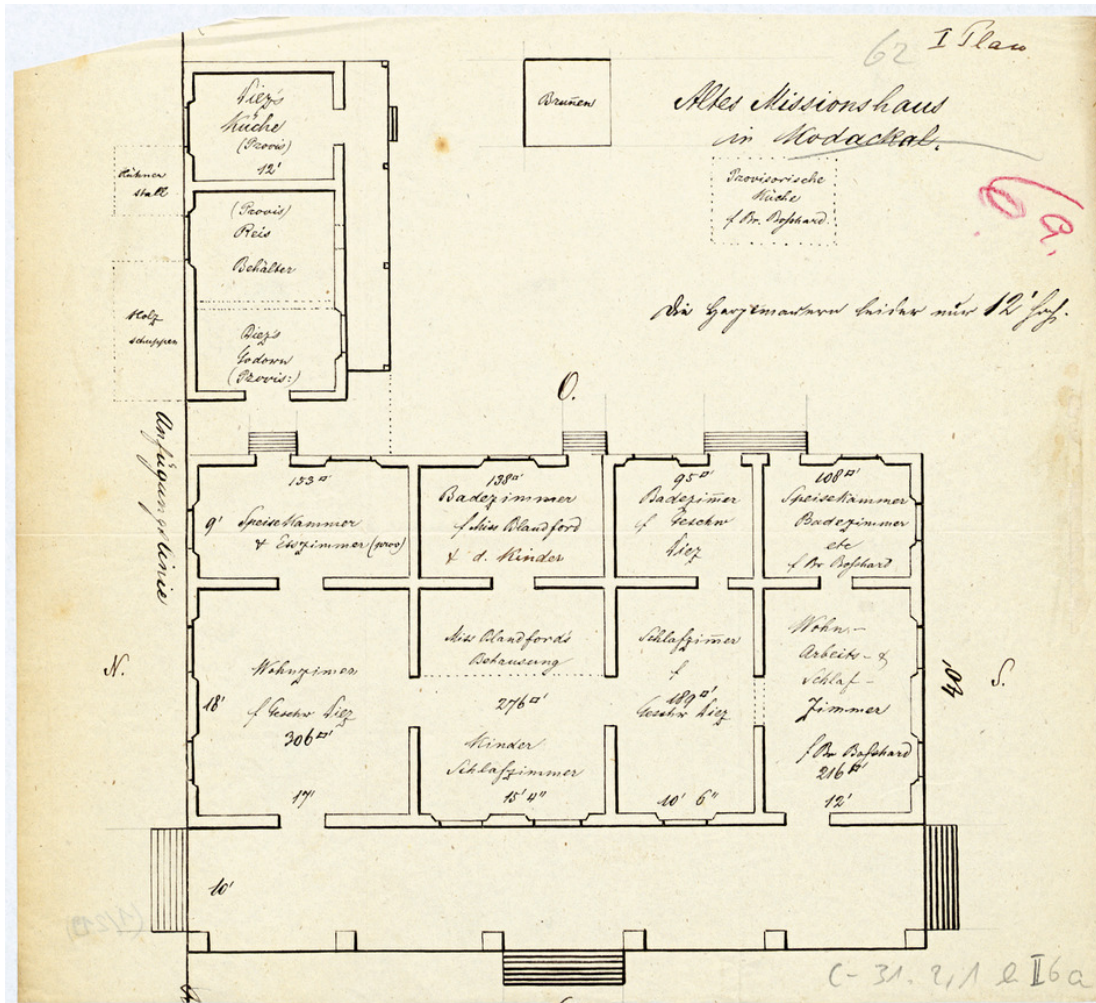 62 I Plan
Altes Missionshaus
in Modackal.
6a.
Brun̄en
Provisorische
Küche
f Br. Boßhard.
Die Hauptmauern leider nur 12' hoch.
Diez's
Küche
(Provis)
12'
Hühner
stall
(Provis)
Reis
Behälter
Holz
schuppen
Diez's
Godown
(Provis:)
O.
Anfügungslinie
153□'
9' Speisekammer
& Esszimmer (prov)
138□'
Badezimmer
f Miss Blandford
& d. Kinder
95□'
Badezim̄er
f Geschw
Diez
108□'
Speisekammer
Badezimmer
etc
f Br Boßhard
N.
Wohnzim̄er
18' f Geschw Diez
306□'
17'
Miss Blandford's
Behausung
276□'
Kinder
Schlafzimmer
15' 4"
Schlafzim̄er
f
189□'
Geschw Diez
10' 6"
Wohn-
Arbeits- &
Schlaf-
Zimmer
f Br Boßhard
216□'
12'
40'
S.
10'
C-31.2,1 e II 6a